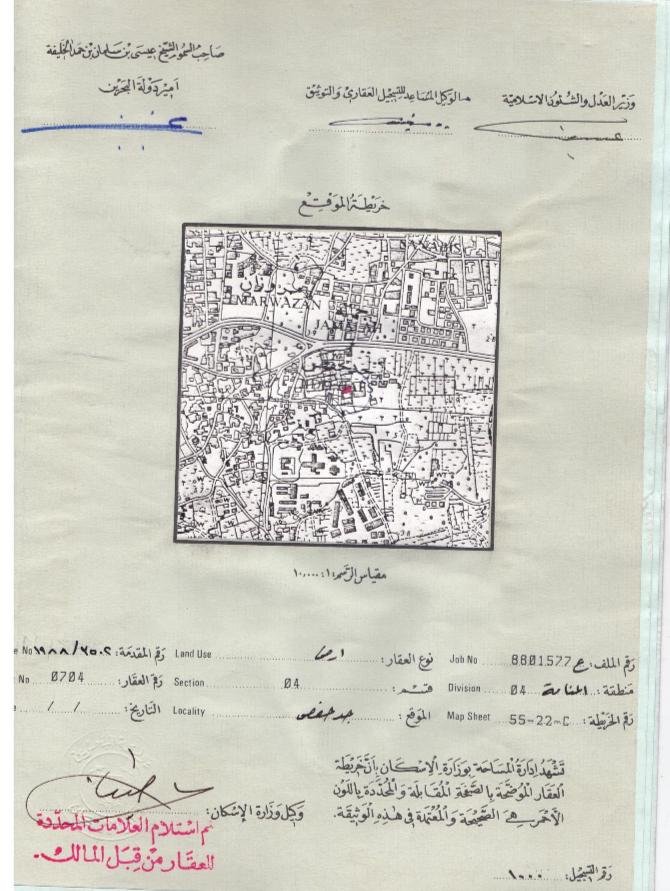 صاحب السمو الشيخ عيسى بن سلمان بن حمد الخليفة
أمير دولة البحرين
الوكيل المساعد للتسجيل العقاري والتوثيق
وزير العدل والشئون الإسلامية
خريطة الموقع
SANABIS
مروزان
MARWAZAN
JAMALAH
جد حفص
مقياس الرسم: ١:١٠,٠٠٠
رقم الملف: ع 8801577 Job No نوع العقار: ارض Land Use رقم المقدمة: ١٩٨٨/٣٥٠٢ No
منطقة: المنامة 04 Division قسم: 04 Section رقم العقار: 0704 No
رقم الخريطة: 55-22-C Map Sheet الموقع: جد حفص Locality التاريخ: / /
تشهد إدارة المساحة بوزارة الإسكان بأن خريطة
العقار الموضحة بالصفحة المقابلة والمحددة باللون
الأحمر هي الصحيحة والمعتمدة في هذه الوثيقة.
وكيل وزارة الإسكان:
تم استلام العلامات المحددة
للعقار من قبل المالك.
رقم التسجيل: ١٠٠٠